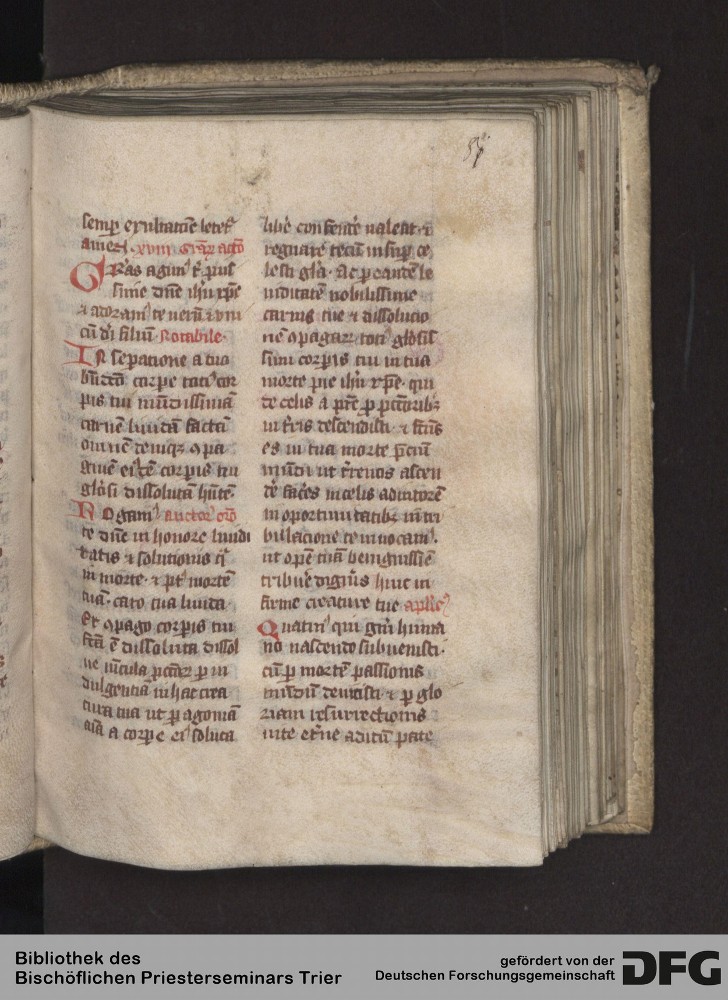 semp exultacie letet᷑
amen xviii Gr̄aꝝ actō
Gr̄as agim᷒ t᷑ pius
sime dn̄e ih̄u xp̄e
⁊ adoram᷒ te verū ⁊ vni
cū dī filiū Notabile
In separacione a tuo
corpe toci᷒ cor
pis tui mūdissimā
carnē liuidā factā
om̄nē deniqꝫ ꝯpa
ginē ei᷒dē corpis tui
glōsi dissolutā
Rogam᷒ auctor᷒ or̄o
te dn̄e in honore liuidi
tatis ⁊ solutionis
in morte ⁊ pt᷒ mortē
tuā caro tua liuida
Et ꝯpago corpis tui
fc̄a ē dissoluta dissol
ue iu̅cula pctōꝝ p in
dulgentiā in hac crea
tura tua ut p agoniā
aīa a corpe ei᷒ soluta
libe᷑ conscende᷑ ualeat ⁊
regnare tecū insup ce
lesti glīa Ac p eandē le
uiditatē nobilissime
carnis tue ⁊ dissolucio
nē ꝯpagaꝝ toci᷒ glōsis
simi corpis tui in tua
morte pie ih̄u xp̄e qui
de celis a pr̄e p pctōribꝫ
in tr̄is descendisti ⁊ fc̄us
es in tua morte pciū
mūdi ut tr̄enos ascen
de᷑ faces in celis adiutorē
in oportunitatibꝫ in tri
bulacione te inuocam᷒
ut opē tuā benignissīe
tribue᷑ digneris huic in
firme creature tue
Quatin᷒ qui gn̄i huma
no nascendo subuenisti
cū p mortē passionis
mūdū ⁊ p glo
riam resurrectionis
uite et᷑ne aditū pate
Bibliothek des
Bischöflichen Priesterseminars Trier
gefördert von der
Deutschen Forschungsgemeinschaft
DFG